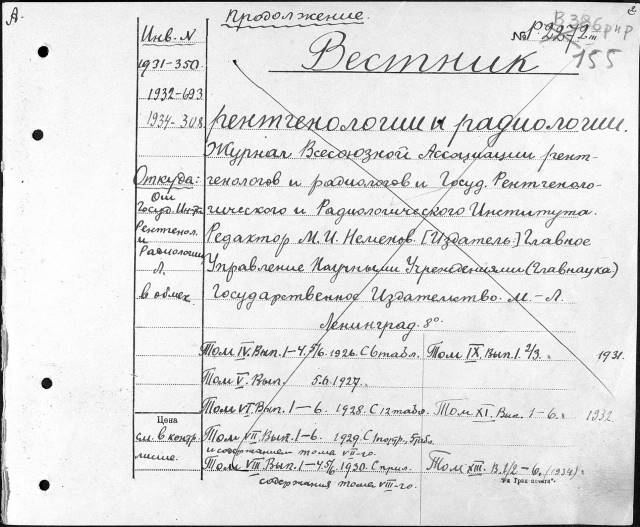 А.
Продолжение.
В 386 рир
№ р. 2272 m
155
Инв. N
1931-350.
1932-693
1934-308
Вестник
рентгенологии и радиологии.
Журнал Всесоюзной Ассоциации рент-
генологов и радиологов и Госуд. Рентгеноло-
гического и Радиологического Института.
Редактор М. И. Неменов. [Издатель:] Главное
Управление Научными Учреждениями (Главнаука)
Государственное Издательство. М.-Л.
Ленинград. 8°.
Откуда:
От
Госуд. Ин-та
Рентгенол.
и
Радиологии
Л.
в обмен
Том IV. Вып. 1-4. 5/6. 1926. С 6 табл.
Том V. Вып. 5.6. 1927.
Том VI. Вып. 1-6. 1928. С 12 табл.
Том VII. Вып. 1-6. 1929. С 1 портр.
и содержанием тома VII-го.
Том VIII. Вып. 1-4. 5/6. 1930. С прил.
содержания тома VIII-го.
Том IX. Вып. 1. 2/3. 1931.
Том XI. Вып. 1-6. 1932.
Том XIII. В. 1/2-6. (1934)
Цена
см. в контр.
листе.